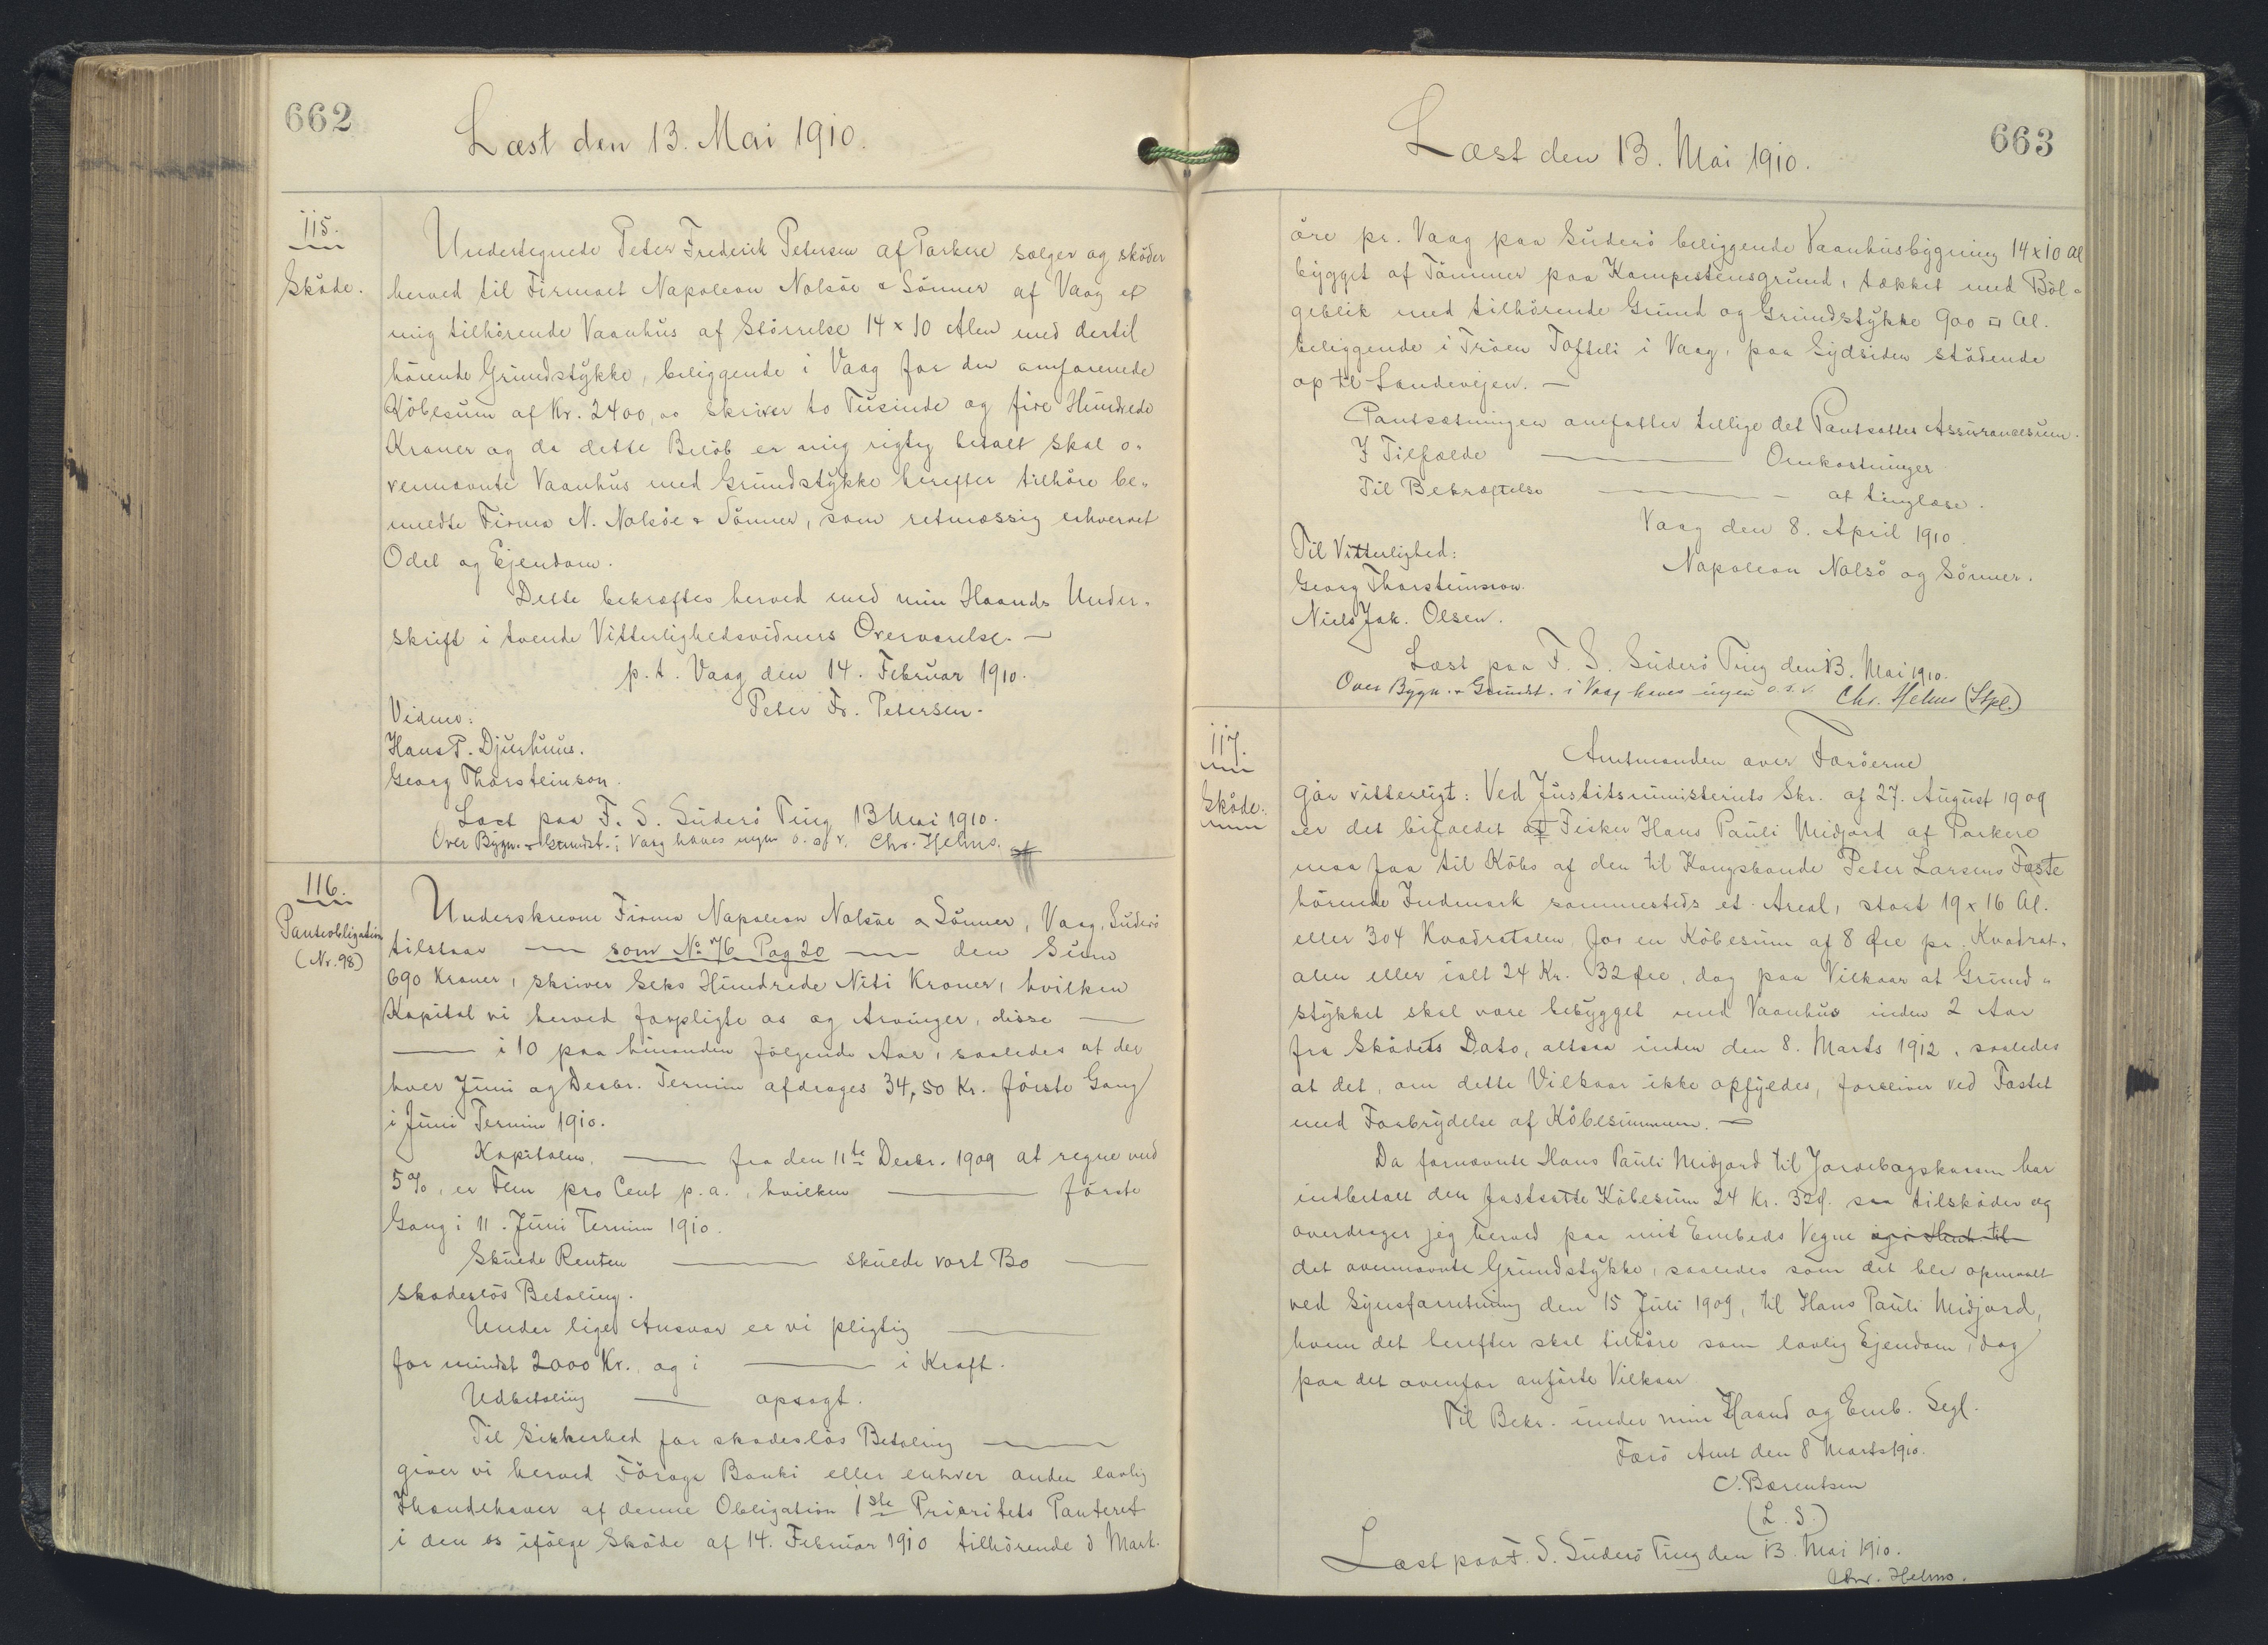 662
Læst den 13. Mai 1910.
115.
Skøde.
Undertegnede Peter Frederik Petersen af Porkere sælger og skøder
herved til Firmaet Napoleon Nolsøe & Sønner af Vaag et
mig tilhørende Vaanhus af Størrelse 14 x 10 Alen med dertil
hørende Grundstykke, beliggende i Vaag for den omforenede
Købesum af Kr. 2400,00 skriver to Tusinde og fire Hundrede
Kroner og da dette Beløb er mig rigtig betalt skal o-
vennævnte Vaanhus med Grundstykke herefter tilhøre be-
meldte Firma N. Nolsøe & Sønner, som retmæssig erhvervet
Odel og Ejendom.
Dette bekræftes herved med min Haands Under-
skrift i tvende Vitterlighedsvidners Overværelse. —
p.t. Vaag den 14. Februar 1910.
Peter Fr. Petersen.
Vidner:
Hans P. Djurhuus.
Georg Thorsteinson.
Læst paa F. S. Suderø Ting 13 Mai 1910.
Over Bygn. & Grundst. i Vaag haves ingen o.s.v. Chr. Helms.
116.
Panteobligation
(Nr. 98)
Underskrevne Firma Napoleon Nolsøe & Sønner, Vaag, Suderø
tilstaar — som No 76 Pag 20 — den Sum
690 Kroner, skriver Seks Hundrede Niti Kroner, hvilken
Kapital vi herved forpligte os og Arvinger, disse —
— i 10 paa hinanden følgende Aar, saaledes at der
hver Juni og Decbr. Termin afdrages 34,50 Kr. første Gang
i Juni Termin 1910.
Kapitalen, — fra den 11te Decbr. 1909 at regne med
5%, er Fem pro Cent p.a., hvilken — første
Gang i 11. Juni Termin 1910.
Skulde Renten — skulde vort Bo —
skadesløs Betaling.
Under lige Ansvar er vi pligtig —
for mindst 2000 Kr. og i — i Kraft.
Udbetaling — opsagt.
Til Sikkerhed for skadesløs Betaling —
giver vi herved Föroya Banki eller enhver anden lovlig
Ihændehaver af denne Obligation 1ste Prioritets Panteret
i den os ifølge Skøde af 14. Februar 1910 tilhørende i Mark.
663
Læst den 13. Mai 1910.
øre pr. Vaag paa Suderø beliggende Vaanhusbygning 14 x 10 Al
bygget af Tømmer paa Kampestensgrund, tækket med Bøl-
geblik med tilhørende Grund og Grundstykke 900 □ Al.
beliggende i Trøen Tofteli i Vaag, paa Sydsiden stødende
op til Landevejen. —
Pantsætningen omfatter tillige det Pantsattes Assurancesum.
I Tilfælde — Omkostninger
Til Bekræftelse — at tinglæse.
Vaag den 8. April 1910.
Napoleon Nolsø og Sønner.
Til Vitterlighed:
Georg Thorsteinsson.
Niels Jak. Olsen.
Læst paa F. S. Suderø Ting den 13. Mai 1910.
Over Bygn. & Grundst. i Vaag haves ingen o.s.v. Chr. Helms (Stpl.)
117.
Skøde.
Amtmanden over Færøerne
gør vitterligt: Ved Justitsministeriets Skr. af 27. August 1909
er det bifaldet at Fisker Hans Pauli Midjord af Porkere
maa faa til Købs af den til Kongsbonde Peter Larsens Fæste
hørende Indmark sammesteds et Areal, stort 19 x 16 Al.
eller 304 Kvadratalen for en Købesum af 8 Øre pr. Kvadrat-
alen eller ialt 24 Kr. 32 Øre, dog paa Vilkaar at Grund-
stykket skal være bebygget med Vaanhus inden 2 Aar
fra Skødets Dato, altsaa inden den 8. Marts 1912, saaledes
at det, om dette Vilkaar ikke opfyldes, forbliver ved Fæstet
med Forbrydelse af Købesummen. —
Da fornævnte Hans Pauli Midjord til Jordebogskassen har
indbetalt den fastsatte Købesum 24 Kr. 32 Ø. saa tilskøder og
overdrager jeg herved paa mit Embeds Vegne
det ovennævnte Grundstykke, saaledes som det blev opmaalt
ved Synsforretning den 15 Juli 1909, til Hans Pauli Midjord,
hvem det herefter skal tilhøre som lovlig Ejendom, dog
paa det ovenfor anførte Vilkaar.
Til Bekr. under min Haand og Emb. Segl.
Færø Amt den 8 Marts 1910.
C. Bærentsen
(L. S.)
Læst paa F. S. Suderø Ting den 13. Mai 1910.
Chr. Helms.